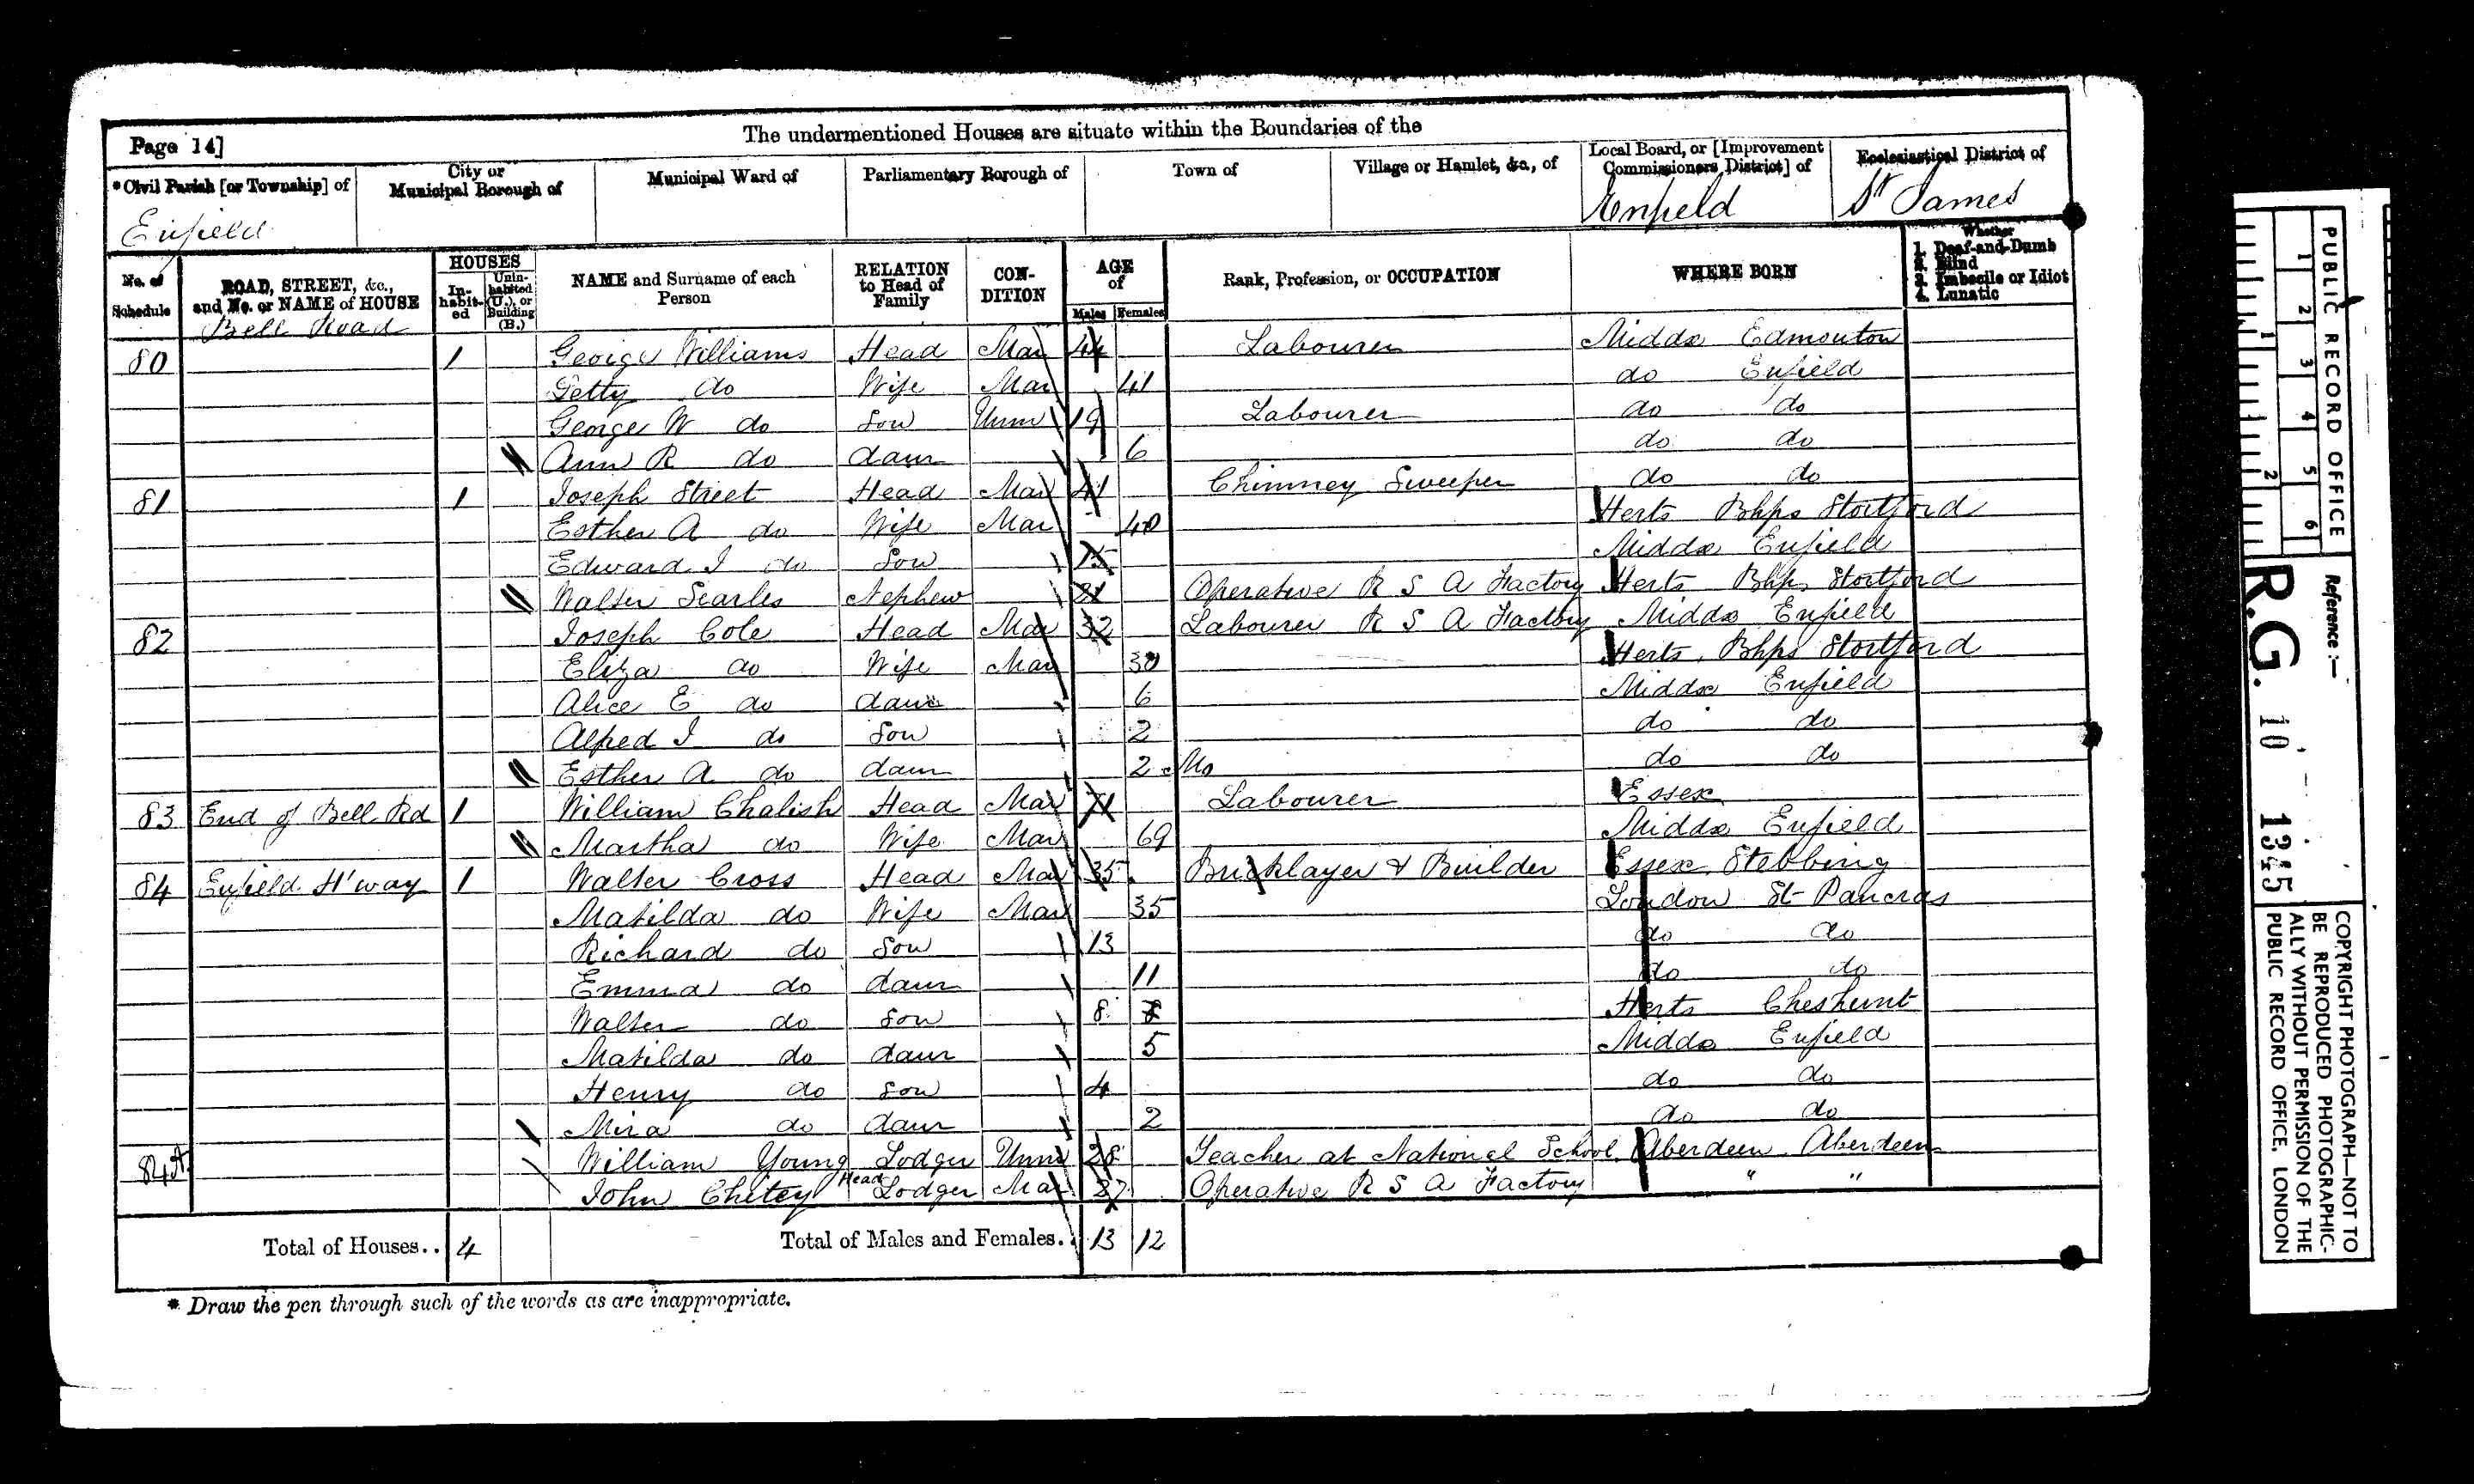 Page 14]
The undermentioned Houses are situate within the Boundaries of the
*Civil Parish [or Township] of
City or Municipal Borough of
Municipal Ward of
Parliamentary Borough of
Town of
Village or Hamlet, &c., of
Local Board, or [Improvement Commissioners District] of
Ecclesiastical District of
Enfield
Enfield
St James
No. of Schedule
ROAD, STREET, &c., and No. or NAME of HOUSE
HOUSES
In-habit-ed
Unin-habited (U.), or Building (B.)
NAME and Surname of each Person
RELATION to Head of Family
CON-DITION
AGE of
Males
Females
Rank, Profession, or OCCUPATION
WHERE BORN
Whether
1. Deaf-and-Dumb
2. Blind
3. Imbecile or Idiot
4. Lunatic
Bell Road
80 1 George Williams Head Mar 44 Labourer Middx Edmonton
Getty do Wife Mar 41 do Enfield
George W do Son Unm 19 Labourer do do
Ann R do daur 6 do do
81 1 Joseph Street Head Mar 41 Chimney Sweeper do do
Esther A do Wife Mar 40 Herts Bhps Stortford
Edward J do Son 15 Middx Enfield
Walter Searles Nephew 21 Operative R S A Factory Herts Bhps Stortford
82 Joseph Cole Head Mar 32 Labourer R S A Factory Middx Enfield
Eliza do Wife Mar 30 Herts Bhps Stortford
Alice E do daur 6 Middx Enfield
Alfred J do Son 2 do do
Esther A do daur 2 Mo do do
83 End of Bell Rd 1 William Chalish Head Mar 71 Labourer Essex
Martha do Wife Mar 69 Middx Enfield
84 Enfield H'way 1 Walter Cross Head Mar 35 Bricklayer & Builder Essex Stebbing
Matilda do Wife Mar 35 London St Pancras
Richard do Son 13 do do
Emma do daur 11 do do
Walter do Son 8 8 Herts Cheshunt
Matilda do daur 5 Middx Enfield
Henry do Son 4 do do
Mira do daur 2 do do
84A William Young Lodger Unm 28 Teacher at National School Aberdeen Aberdeen
John Chitey Head Lodger Mar 27 Operative R S A Factory " "
Total of Houses.. 4
Total of Males and Females.. 13 12
* Draw the pen through such of the words as are inappropriate.
PUBLIC RECORD OFFICE
1 2 3 4 5 6
1 2
Reference :—
R.G. 10 1345
COPYRIGHT PHOTOGRAPH—NOT TO
BE REPRODUCED PHOTOGRAPHIC-
ALLY WITHOUT PERMISSION OF THE
PUBLIC RECORD OFFICE, LONDON